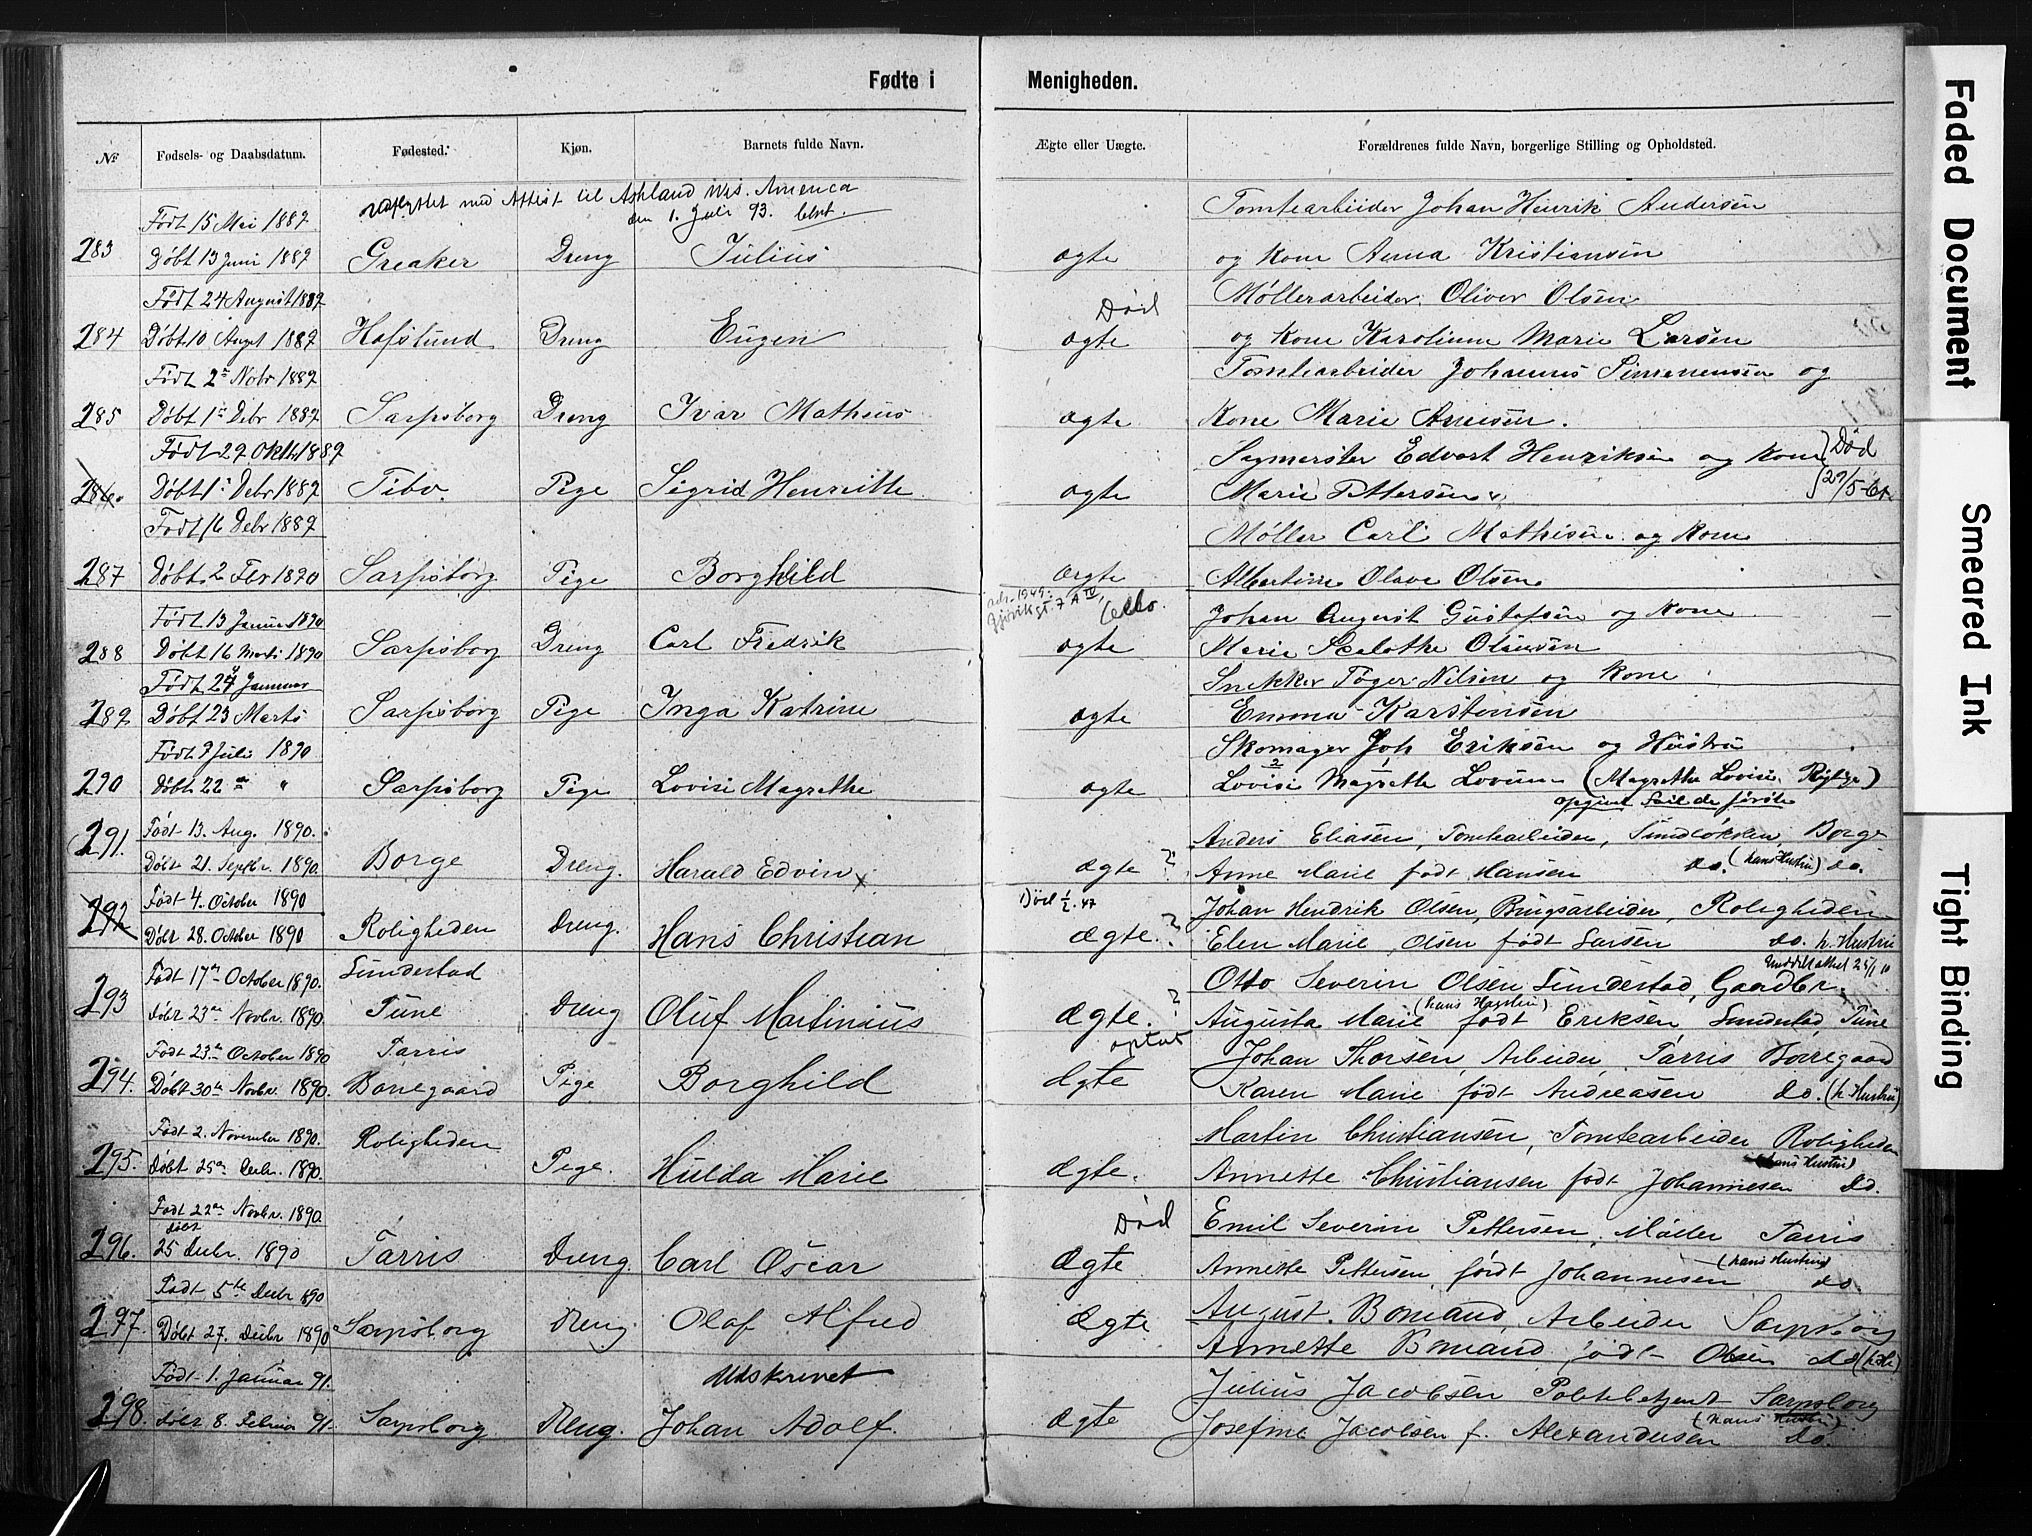 Fødte i Menigheden.
№ Fødsels- og Daabsdatum. Fødested. Kjøn. Barnets fulde Navn. Ægte eller Uægte. Forældrenes fulde Navn, borgerlige Stilling og Opholdsted.
udflyttet med Attest til Ashland Wis. America
den 1. Juli 93.
Født 15 Mai 1889 Tomtearbeider Johan Henrik Andersen
283 Døbt 13 Juni 1889 Greaker Dreng Julius ægte og Kone Anna Kristiansen
Født 24 August 1889 Død Møllerarbeider Oliver Olsen
284 Døbt 10 Augst 1889 Hafslund Dreng Eugen ægte og Kone Karoline Marie Larsen
Født 2 Nobr 1889 Tomtearbeider Johannes Simmensen og
285 Døbt 1 Debr 1889 Sarpsborg Dreng Ivar Matheus ægte Kone Marie Arnesen.
Født 29 Okth 1889 Sagmester Edvart Henriksen og Kone Død
286. Døbt 1 Debr 1889 Tibo. Pige Sigrid Henriette ægte Marie Pettersen 29/5-
Født 16 Debr 1889 Møller Carl Mathisen og Kone
287 Døbt 2 Fer 1890 Sarpsborg Pige Borghild ægte Albertine Olave Olsen
adr. 1949. Gjøvikgt. 7 A IV, Oslo.
Født 13 Januar 1890 Johan August Gustafsen og Kone
288 Døbt 16 Marts 1890 Sarpsborg Dreng Carl Fredrik ægte Marie Scelothe Olausen
Født 24 Januar Snekker Tøger Nilsen og Kone
289 Døbt 23 Marts Sarpsborg Pige Inga Katrine ægte Emma Karstensen
Født 9 Juli 1890 Skomager Joh Eriksen og Hustru
290 Døbt 22 " Sarpsborg Pige Lovise Magrethe ægte Lovise Magrethe Lovise (Magrethe Lovise Rigtige)
opgivet Feil de første
Født 13. Aug. 1890. Anders Eliasen, Tomtearbeider, Sundløkken, Borge
291. Døbt 21. Septbr. 1890. Borge Dreng. Harald Edvin x ægte ? Anne Marie født Hansen do. (hans Hustru) do.
Født 4. October 1890 Død 1/2. 47 Johan Hendrik Olsen, Brugsarbeider, Roligheden
292 Døbt 28. October 1890 Roligheden Dreng. Hans Christian Ægte. ? Elen Marie Olsen født Larsen do. h. Hustru
Uddelt attest 25/1 10
Født 17 October 1890. Sundestad Otto Severin Olsen Sundestad, Gaardbr.
(hans Hustru)
293 Døbt 23 Novbr. 1890. Tune Dreng Oluf Martinius Ægte. ? Augusta Marie født Eriksen, Sundestad, Tune
Født 23 October 1890 Tarris Johan Thorsen, Arbeider, Tarris Borregaard
294. Døbt 30 Novbr. 1890. Borregaard Pige Borghild Ægte Karen Marie født Andreasen do. (h. Hustru)
Født 2. November 1890. Roligheden Martin Christiansen, Tomtearbeider Roligheden
(hans Hustru)
295. Døbt 25 Decbr. 1890. Pige. Hulda Marie Ægte. Annette Christiansen født Johannesen do.
Født 22 Novbr. 1890. Død Emil Severin Pettersen, Møller Tarris
døbt (hans Hustru)
296. 25 Decbr. 1890 Tarris Dreng. Carl Oscar Ægte. Annette Pettersen, født Johannesen do.
Født 5 Decbr 1890 August Bomand, Arbeider Sarpsborg
297. Døbt 27. Decbr 1890 Sarpsborg Dreng Olaf Alfred Ægte. Annette Bomand, født Olsen do
Født 1. Januar 91. Udskrevet Julius Jacobsen Politibetjent Sarpsborg
(hans Hustru)
298. Døbt 8. Februar 91. Sarpsborg Dreng. Johan Adolf. Ægte Josefine Jacobsen f. Alexandersen do.
Faded Document
Smeared Ink
Tight Binding